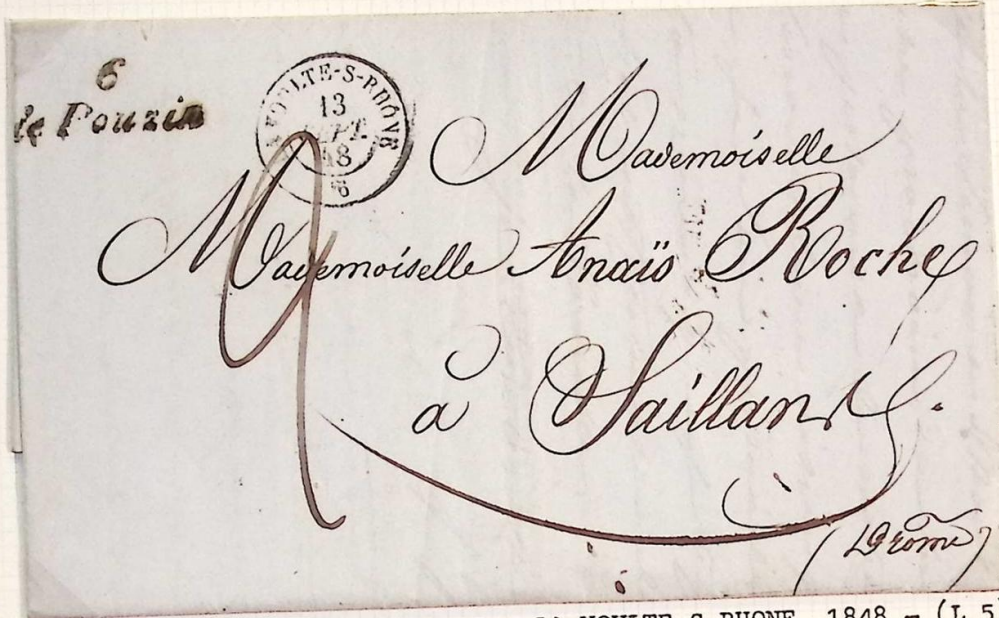 6
le Pouzin
LAVOULTE-S-RHÔNE
13
SEPT.
48
6
Mademoiselle
Mademoiselle Anaïs Roche
à Saillans.
(Drôme)
VOULTE S RHONE 1848 - (L 5